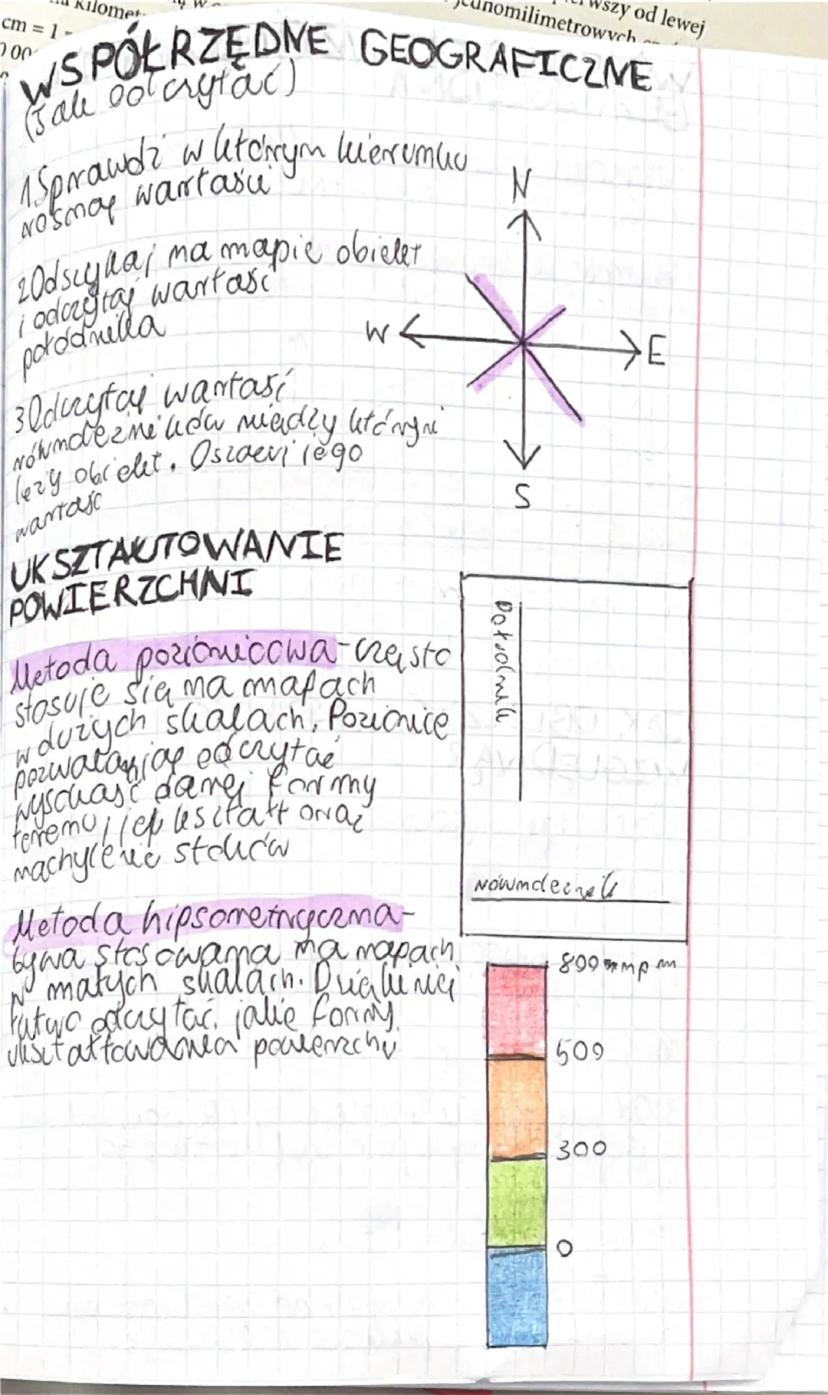 na kilomet
cm = 1
jednomilimetrowych
wszy od lewej
WSPÓŁRZĘDNE GEOGRAFICZNE
(Jak odczytać)
1Sprawdź w którym kierunku
rosnąą wartaści
2Odszykaj na mapie obiekt
i odczytaj wartość
połódnika
3Odczytaj wartość
równoleżników między którymi
leży obiekt. Oszacuj jego
wartość
N
W
E
S
UKSZTAŁTOWANIE
POWIERZCHNI
Metoda poziomicowa - często
stosuje się na mapach
w dużych skalach. Poziomice
pozwalająą odczytać
wysokość danej formy
terenu, jej kształt oraz
nachylenie stoków
Południk
Równoleżnik
Metoda hipsometryczna-
bywa stosowana na mapach
w małych skalach. Dzięki niej
łatwo odczytać, jakie formy
ukształtowania powierzchni
800 m n p m
500
300
0